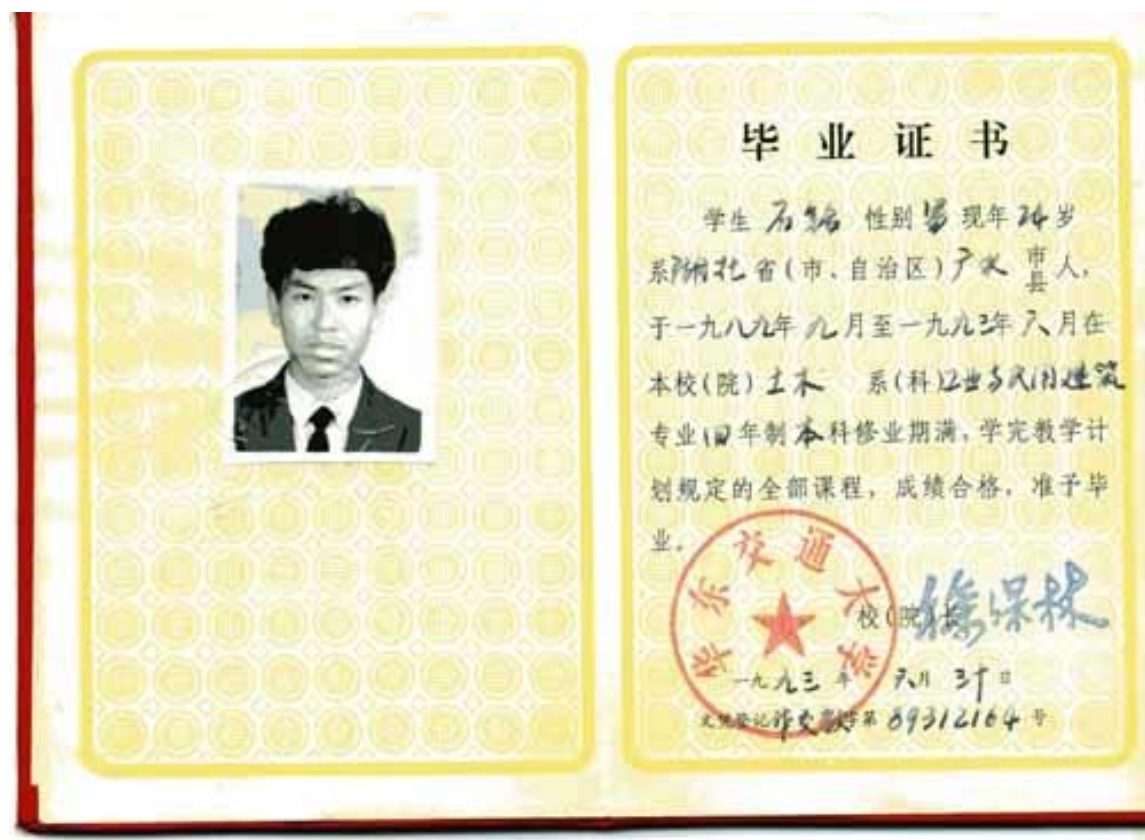 毕业证书
学生 石 性别 男 现年 24 岁
系 湖北 省(市、自治区) 广水 市县 人,
于一九八九年 九 月至一九九三年 六 月在
本校(院) 土木 系(科) 工业与民用建筑
专业 四 年制 本 科修业期满,学完教学计
划规定的全部课程,成绩合格,准予毕
业。
华东交通大学
校(院)长 徐保林
一九九三年 六月 三十日
文凭登记 第 89312164 号